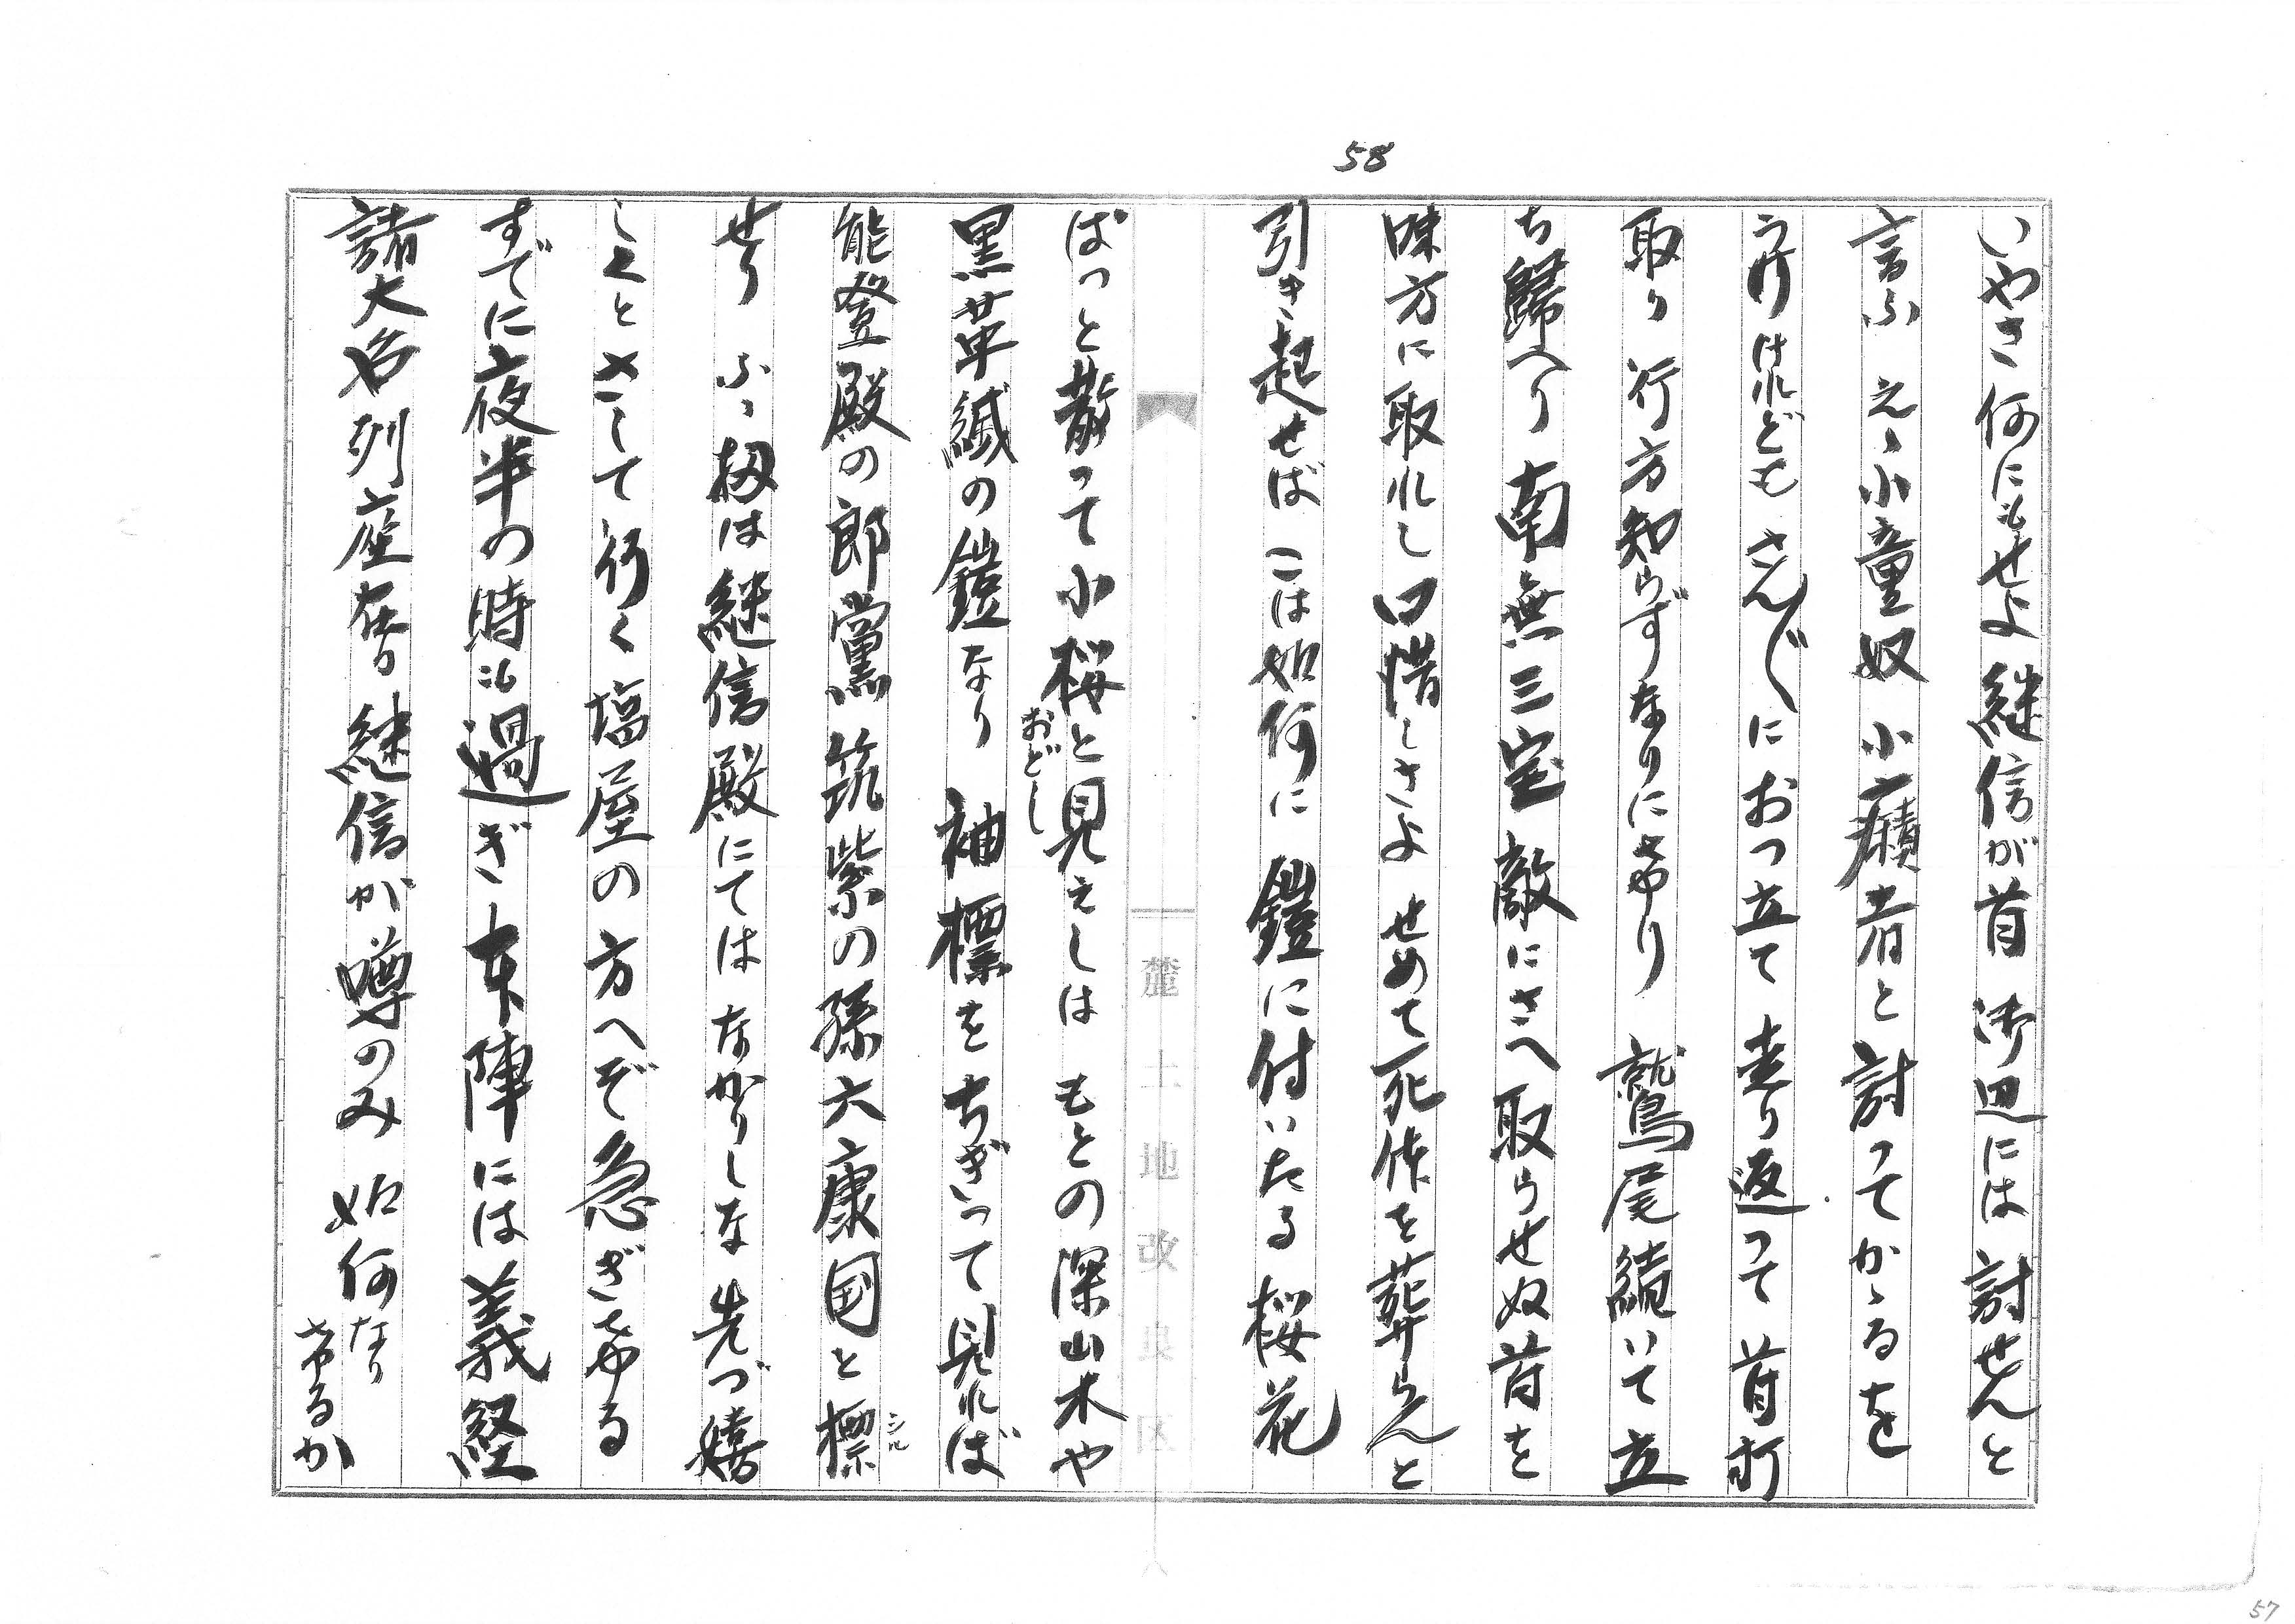 58
いやさ何にもせよ継信が首 御辺には討せんと
言ふ えゝ小童奴 小癪者と討ってかゝるを
うけけれどもさん〴〵におっ立て走り返って首打
取り行方知らずなりにけり 鷲尾続いて立
ち歸へり 南無三宝 敵にさへ取らせぬ首を
味方に取れし口惜しさよ せめて死体を葬らんと
引き起せば こは如何に 鎧に付いたる桜花
ぱっと散って小桜と見えしは もとの深山木や
おどし
黒革縅の鎧なり 袖標をちぎって見れば
能登殿の郎黨 筑紫の孫六康国と標
シル
せり ふゝ扨は継信殿にてはなかりしな 先づ嬉
しくとさして行く塩屋の方へぞ急ぎける
すでに夜半の時も過ぎ 本陣には義経
諸大名列座有 継信が噂のみ 如何なり
けるか
麓土地改良区
57